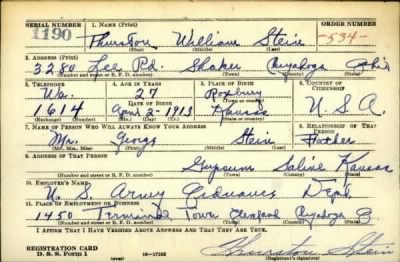 SERIAL NUMBER 1. NAME (Print) ORDER NUMBER
1190 Thurston William Stein -534-
(First) (Middle) (Last)
2. ADDRESS (Print)
3280 Lee Rd. Shaker Cuyahoga Ohio
(Number and street or R. F. D. number) (Town) (County) (State)
3. TELEPHONE 4. AGE IN YEARS 5. PLACE OF BIRTH 6. COUNTRY OF CITIZENSHIP
Wa. 27 Roxbury
DATE OF BIRTH (Town or county)
1614 1913 Kansas U.S.A.
(Exchange) (Number) (Mo.) (Day) (Yr.) (State or country)
7. NAME OF PERSON WHO WILL ALWAYS KNOW YOUR ADDRESS 8. RELATIONSHIP OF THAT PERSON
Mr. George Stein Father
(Mr., Mrs., Miss) (First) (Middle) (Last)
9. ADDRESS OF THAT PERSON
Gypsum Saline Kansas
(Number and street or R. F. D. number) (Town) (County) (State)
10. EMPLOYER'S NAME
U. S. Army Ordnance Dept.
11. PLACE OF EMPLOYMENT OR BUSINESS
1450 Terminal Tower Cleveland Cuyahoga O
(Number and street or R. F. D. number) (Town) (County) (State)
I AFFIRM THAT I HAVE VERIFIED ABOVE ANSWERS AND THAT THEY ARE TRUE.
REGISTRATION CARD
D. S. S. Form 1 16—17105 Thurston Stein
(Registrant's signature)